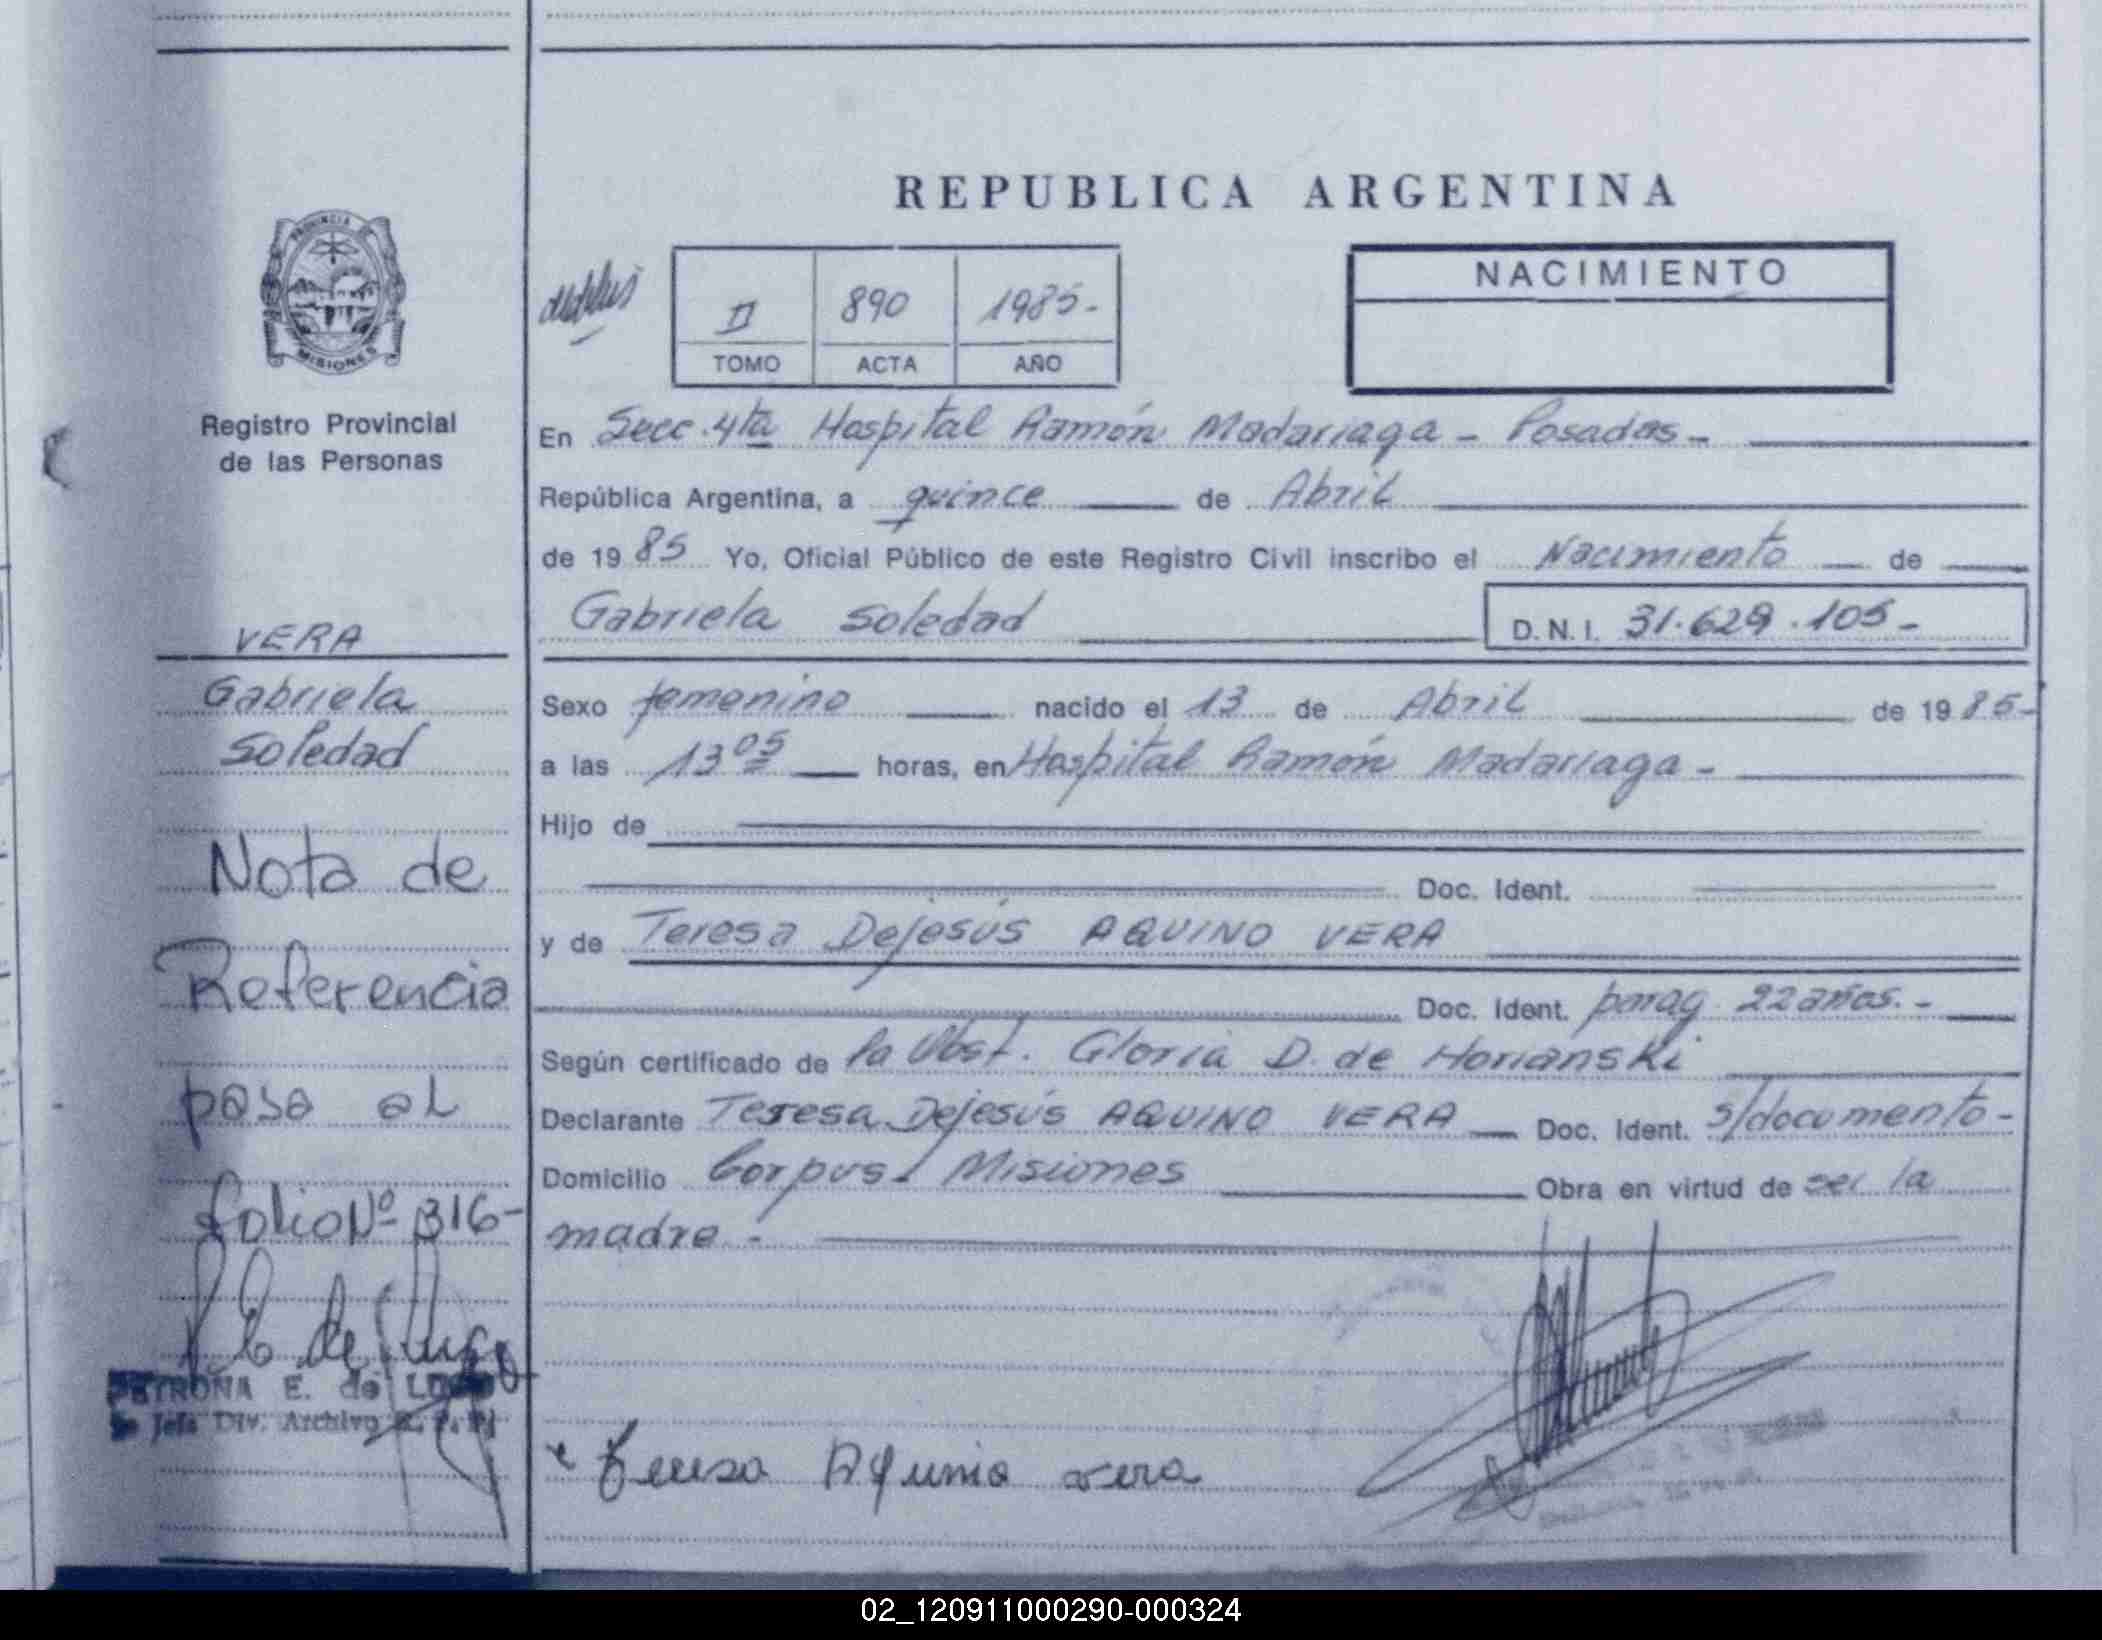 REPUBLICA ARGENTINA
PROVINCIA DE
MISIONES
Registro Provincial
de las Personas
VERA
Gabriela
Soledad
Nota de
Referencia
pasa al
folio Nº 316-
PETRONA E. de LUGO
Jefa Div. Archivo
II 890 1985-
TOMO ACTA AÑO
NACIMIENTO
En Secc. 4ta Hospital Ramón Madariaga - Posadas -
República Argentina, a quince de Abril
de 19 85 Yo, Oficial Público de este Registro Civil inscribo el Nacimiento de
Gabriela Soledad D.N.I. 31.629.105-
Sexo femenino nacido el 13 de Abril de 19 85-
a las 13 05 horas, en Hospital Ramón Madariaga -
Hijo de
Doc. Ident.
y de Teresa Dejesús AQUINO VERA
Doc. Ident. parag 22 años.-
Según certificado de la Obst. Gloria D. de Horianski
Declarante Teresa Dejesús AQUINO VERA Doc. Ident. s/documento-
Domicilio Corpus - Misiones Obra en virtud de ser la
madre -
Teresa Aquino vera
02_120911000290-000324